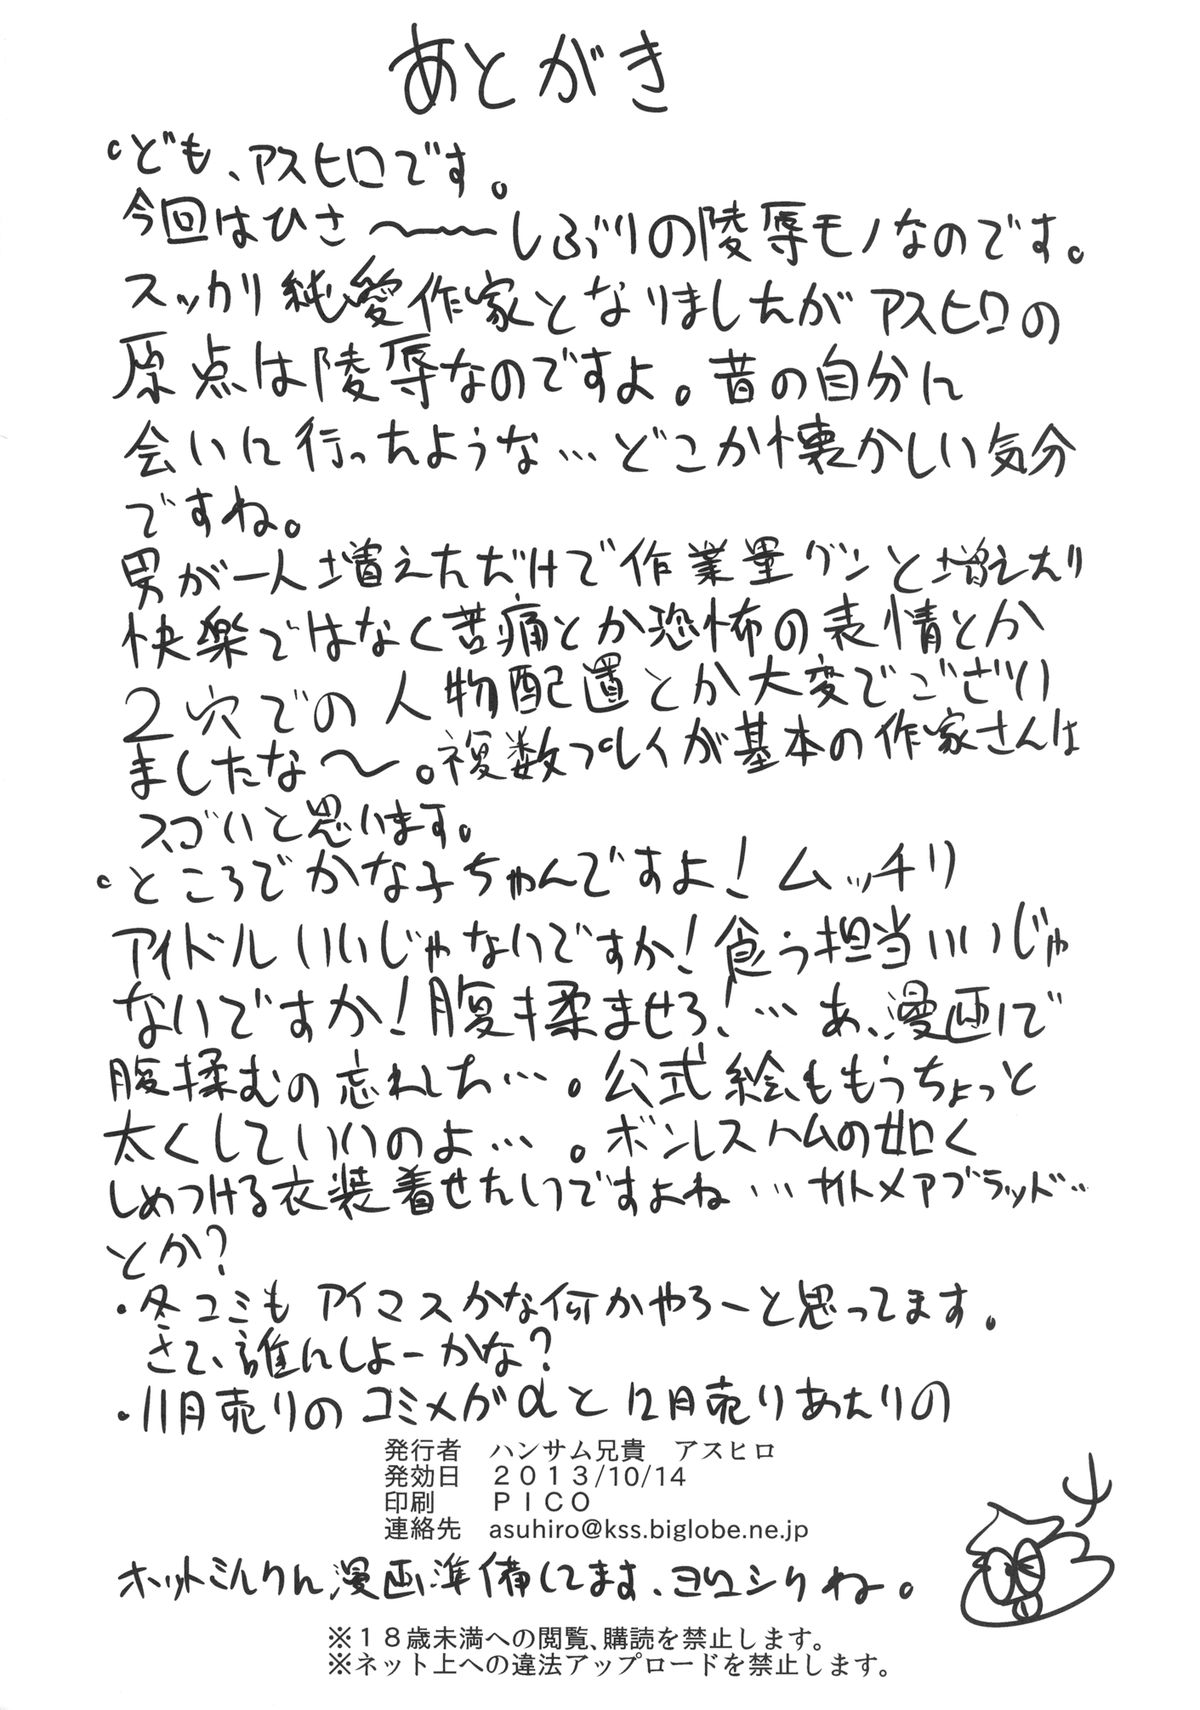 あとがき
ども、アスヒロです。
今回はひさ〜〜〜しぶりの陵辱モノなのです。
スッカリ純愛作家となりましたがアスヒロの
原点は陵辱なのですよ。昔の自分に
会いに行ったような…どこか懐かしい気分
ですね。
男が一人増えただけで作業量グンと増えたり
快楽ではなく苦痛とか恐怖の表情とか
2穴での人物配置とか大変でござい
ましたな〜。複数プレイが基本の作家さんは
スゴいと思います。
ところでかな子ちゃんですよ!ムッチリ
アイドルいいじゃないですか!食う担当いいじゃ
ないですか!腹揉ませろ!…あ、漫画で
腹揉むの忘れした…。公式絵ももうちょっと
太くしていいのよ…。ボンレスハムの如く
しめつける衣装着せたいですよね…ナイトメアブラッド…
とか?
・冬コミもアイマスかな何かやろーと思ってます。
さて、誰にしよーかな?
・11月売りのコミメガαと12月売りあたりの
発行者 ハンサム兄貴 アスヒロ
発効日 2013/10/14
印刷 PICO
連絡先 asuhiro@kss.biglobe.ne.jp
ホットミルクに漫画準備してます、ヨロシクね。
※18歳未満への閲覧、購読を禁止します。
※ネット上への違法アップロードを禁止します。